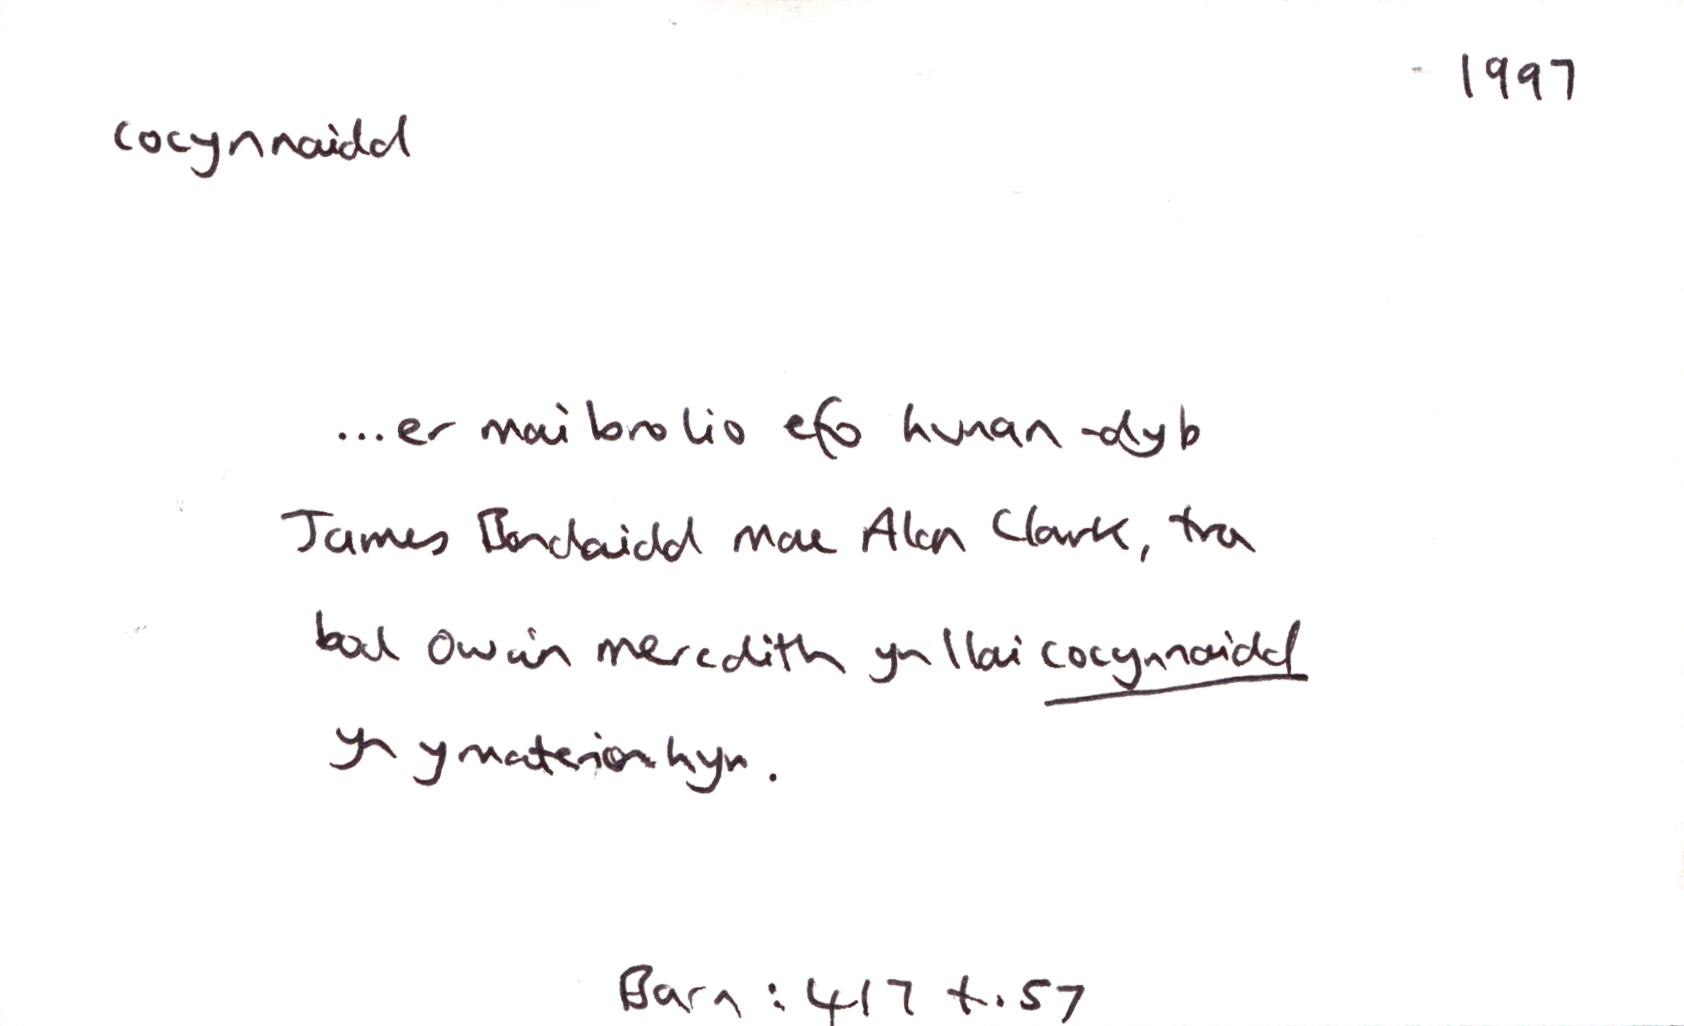 1997
cocynnaidd
...er mai brolio efo hunan-dyb
James Bondaidd mae Alan Clark, tra
bod Owain Meredith yn llai cocynnaidd
yn y materion hyn.
Barn : 417 t. 57